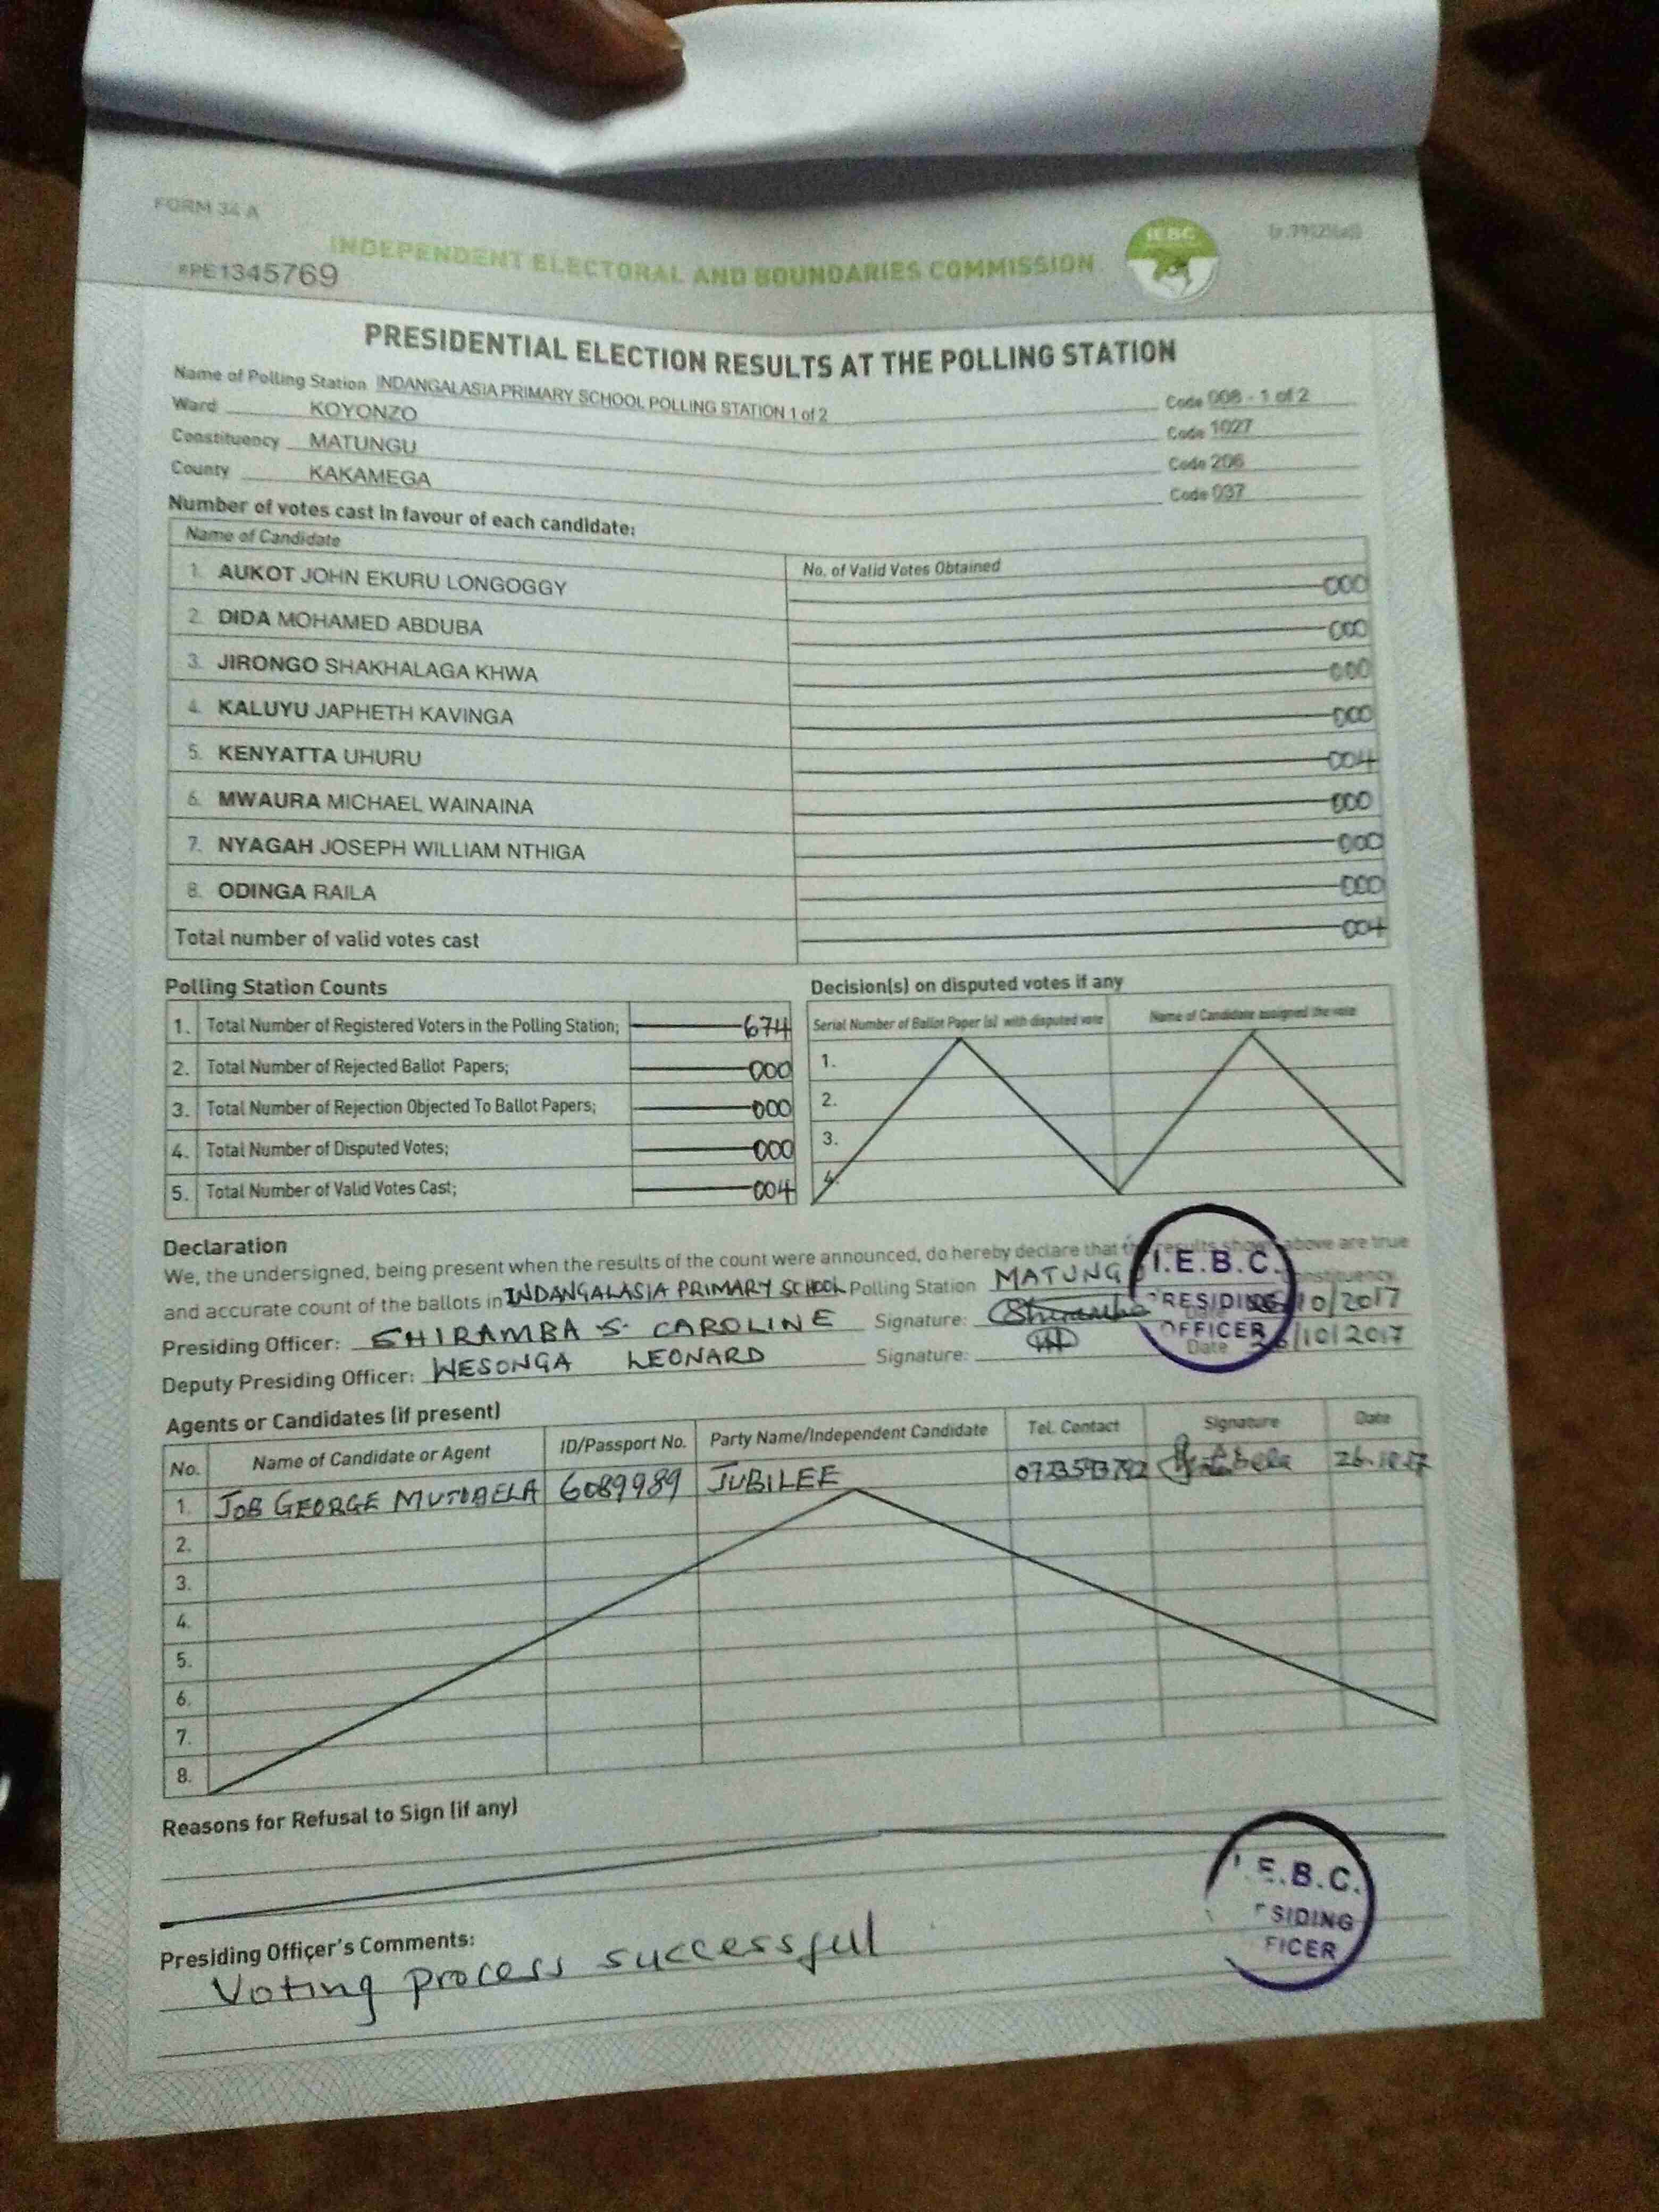 FORM 34 A
INDEPENDENT ELECTORAL AND BOUNDARIES COMMISSION
IEBC
#PE1345769
PRESIDENTIAL ELECTION RESULTS AT THE POLLING STATION
Name of Polling Station INDANGALASIA PRIMARY SCHOOL POLLING STATION 1 of 2 Code 008 - 1 of 2
Ward KOYONZO Code 1027
Constituency MATUNGU Code 206
County KAKAMEGA Code 037
Number of votes cast in favour of each candidate:
Name of Candidate No. of Valid Votes Obtained
1. AUKOT JOHN EKURU LONGOGGY 000
2. DIDA MOHAMED ABDUBA 000
3. JIRONGO SHAKHALAGA KHWA 000
4. KALUYU JAPHETH KAVINGA 000
5. KENYATTA UHURU 004
6. MWAURA MICHAEL WAINAINA 000
7. NYAGAH JOSEPH WILLIAM NTHIGA 000
8. ODINGA RAILA 000
Total number of valid votes cast 004
Polling Station Counts
1. Total Number of Registered Voters in the Polling Station; 674
2. Total Number of Rejected Ballot Papers; 000
3. Total Number of Rejection Objected To Ballot Papers; 000
4. Total Number of Disputed Votes; 000
5. Total Number of Valid Votes Cast; 004
Decision(s) on disputed votes if any
Serial Number of Ballot Paper (s) with disputed vote Name of Candidate assigned the vote
1.
2.
3.
4.
Declaration
We, the undersigned, being present when the results of the count were announced, do hereby declare that the results shown above are true
and accurate count of the ballots in INDANGALASIA PRIMARY SCHOOL Polling Station MATUNG Constituency
Presiding Officer: SHIRAMBA S. CAROLINE Signature: Shiramba Date 26/10/2017
Deputy Presiding Officer: WESONGA LEONARD Signature: Date 26/10/2017
I.E.B.C.
PRESIDING
OFFICER
Agents or Candidates (if present)
No. Name of Candidate or Agent ID/Passport No. Party Name/Independent Candidate Tel. Contact Signature Date
1. JOB GEORGE MUTOBELA 6089989 JUBILEE 0723593792 26.10.17
2.
3.
4.
5.
6.
7.
8.
Reasons for Refusal to Sign (if any)
Presiding Officer's Comments:
Voting process successful
E.B.C.
SIDING
FICER